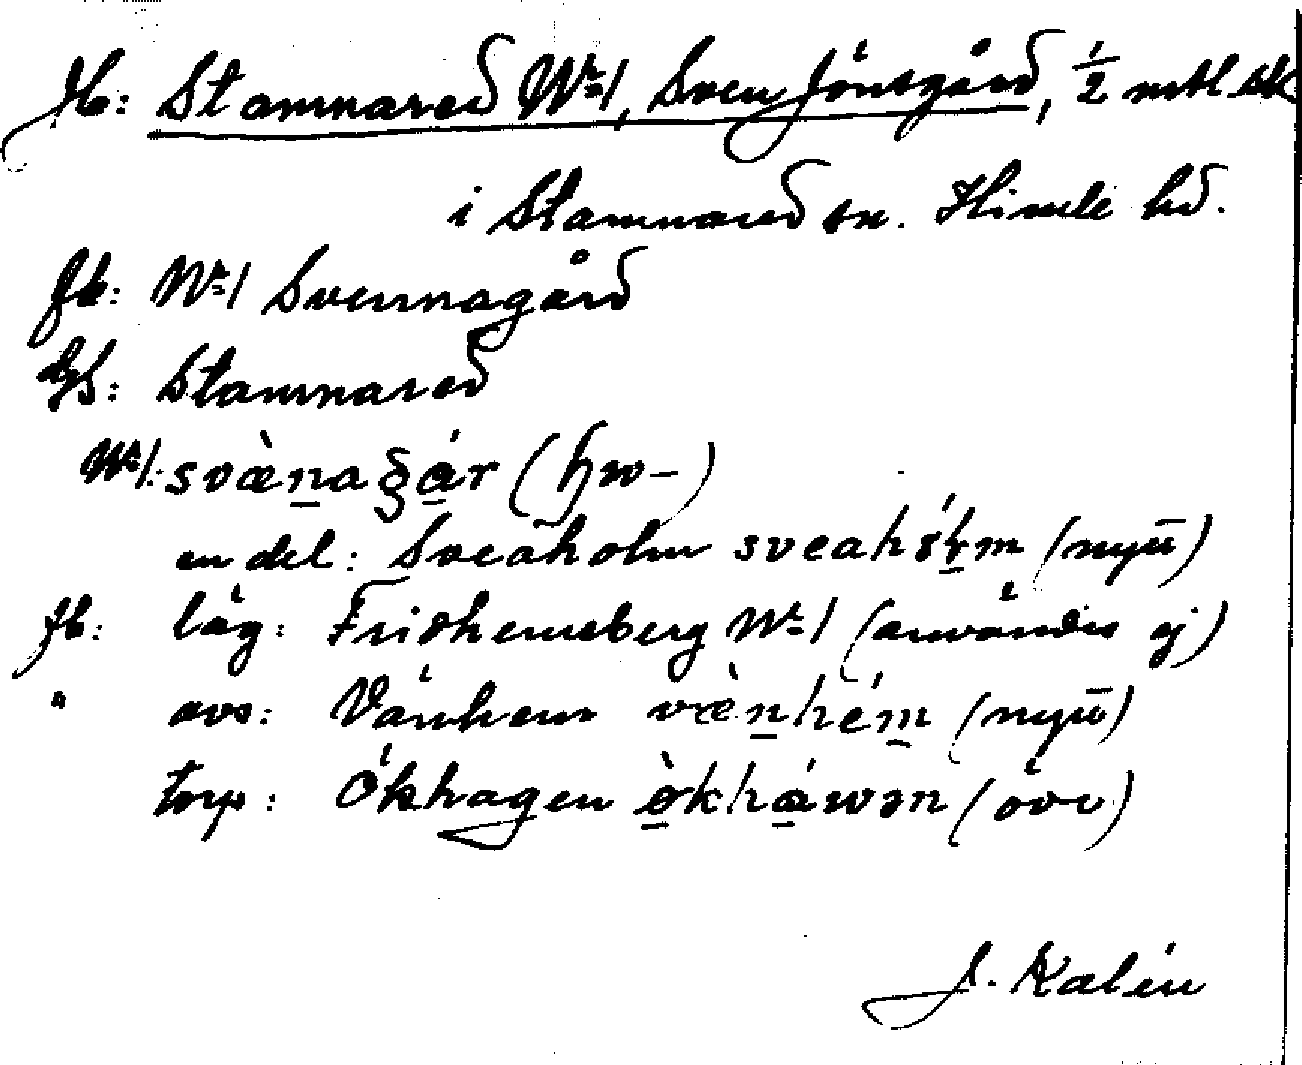 Jb: Stamnared Nr 1, Sven Jönsgård, 1/2 mtl sk
i Stamnared sn. Himle hd.
fb: Nr 1 Svennagård
GS: Stamnared
Nr 1: svæ̀na gár (hw-)
en del: Sveaholm sveahólm (nyü)
fb: läg: Fridhemsberg Nr 1 (användes ej)
" avs: Vänhem væ̀nhém (nyü)
torp: Ökhagen ö̀kháwən (öve)
J. Kalén